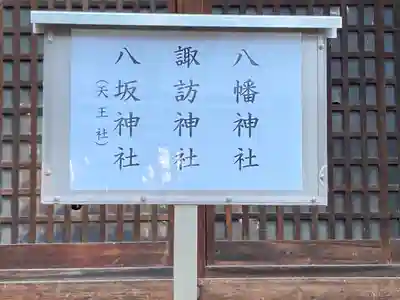 八幡神社
諏訪神社
八坂神社
(天王社)